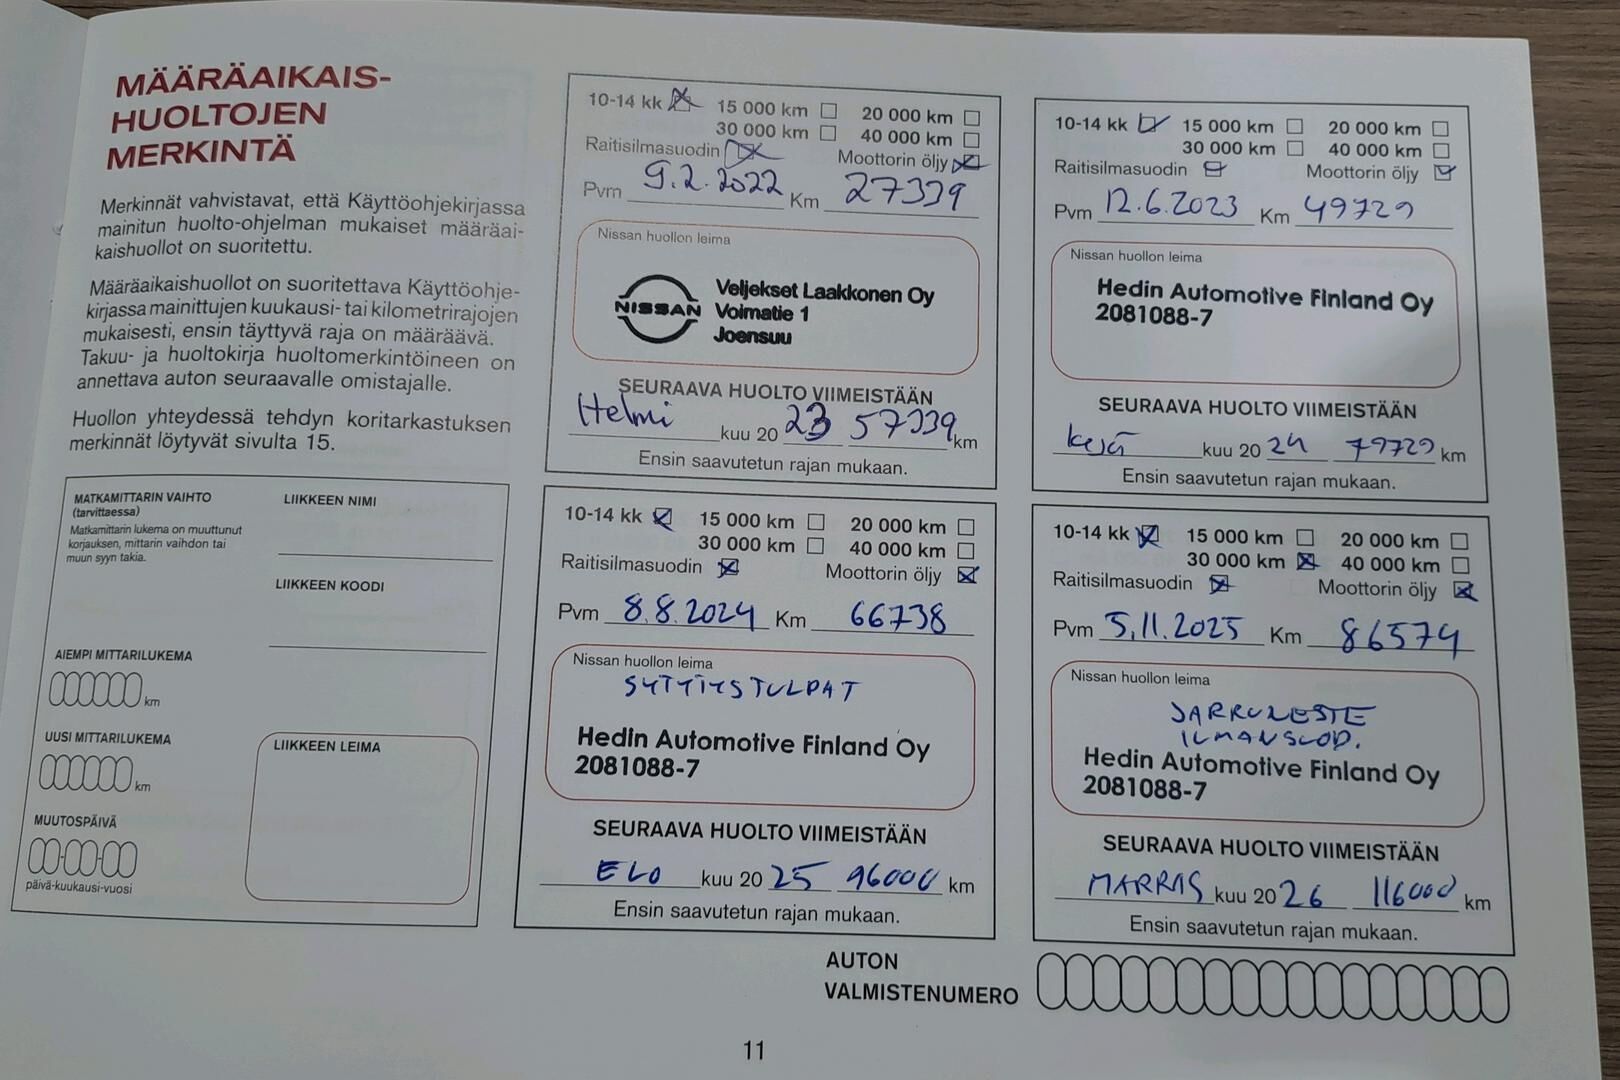 MÄÄRÄAIKAIS-
HUOLTOJEN
MERKINTÄ
Merkinnät vahvistavat, että Käyttöohjekirjassa
mainitun huolto-ohjelman mukaiset määräai-
kaishuollot on suoritettu.
Määräaikaishuollot on suoritettava Käyttöohje-
kirjassa mainittujen kuukausi- tai kilometrirajojen
mukaisesti, ensin täyttyvä raja on määräävä.
Takuu- ja huoltokirja huoltomerkintöineen on
annettava auton seuraavalle omistajalle.
Huollon yhteydessä tehdyn koritarkastuksen
merkinnät löytyvät sivulta 15.
MATKAMITTARIN VAIHTO
(tarvittaessa)
Matkamittarin lukema on muuttunut
korjauksen, mittarin vaihdon tai
muun syyn takia.
LIIKKEEN NIMI
LIIKKEEN KOODI
AIEMPI MITTARILUKEMA
km
UUSI MITTARILUKEMA
km
MUUTOSPÄIVÄ
päivä-kuukausi-vuosi
LIIKKEEN LEIMA
10-14 kk 15 000 km 20 000 km
30 000 km 40 000 km
Raitisilmasuodin Moottorin öljy
Pvm 9.2.2022 Km 27339
Nissan huollon leima
NISSAN
Veljekset Laakkonen Oy
Voimatie 1
Joensuu
SEURAAVA HUOLTO VIIMEISTÄÄN
Helmi kuu 20 23 57339 km
Ensin saavutetun rajan mukaan.
10-14 kk 15 000 km 20 000 km
30 000 km 40 000 km
Raitisilmasuodin Moottorin öljy
Pvm 12.6.2023 Km 49729
Nissan huollon leima
Hedin Automotive Finland Oy
2081088-7
SEURAAVA HUOLTO VIIMEISTÄÄN
kesä kuu 20 24 79729 km
Ensin saavutetun rajan mukaan.
10-14 kk 15 000 km 20 000 km
30 000 km 40 000 km
Raitisilmasuodin Moottorin öljy
Pvm 8.8.2024 Km 66738
Nissan huollon leima
SYTYTYSTULPAT
Hedin Automotive Finland Oy
2081088-7
SEURAAVA HUOLTO VIIMEISTÄÄN
ELO kuu 20 25 96000 km
Ensin saavutetun rajan mukaan.
10-14 kk 15 000 km 20 000 km
30 000 km 40 000 km
Raitisilmasuodin Moottorin öljy
Pvm 5.11.2025 Km 86574
Nissan huollon leima
JARRUNESTE
ILMANSUOD.
Hedin Automotive Finland Oy
2081088-7
SEURAAVA HUOLTO VIIMEISTÄÄN
MARRAS kuu 20 26 116000 km
Ensin saavutetun rajan mukaan.
AUTON
VALMISTENUMERO
11